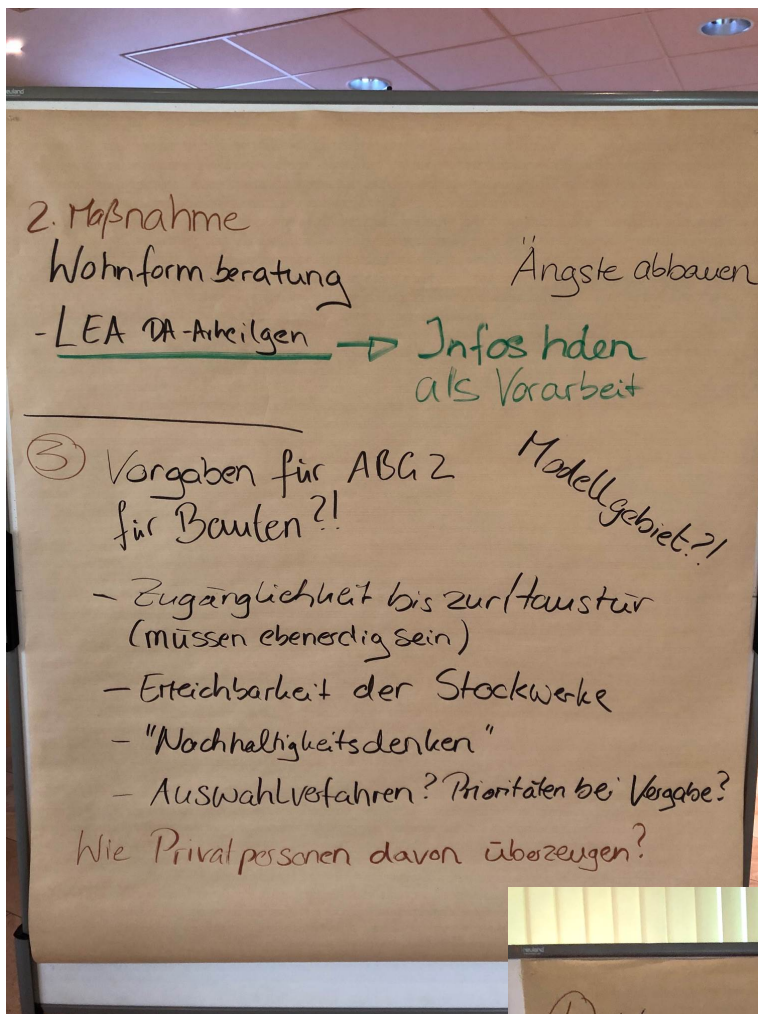 2. Maßnahme
Wohnformberatung
Ängste abbauen
- LEA DA-Arheilgen → Infos holen
als Vorarbeit
③ Vorgaben für ABG 2
für Bauten?!
Modellgebiet?!
- Zugänglichkeit bis zur Haustür
(müssen ebenerdig sein)
- Erreichbarkeit der Stockwerke
- "Nachhaltigkeitsdenken"
- Auswahlverfahren? Prioritäten bei Vergabe?
Wie Privatpersonen davon überzeugen?